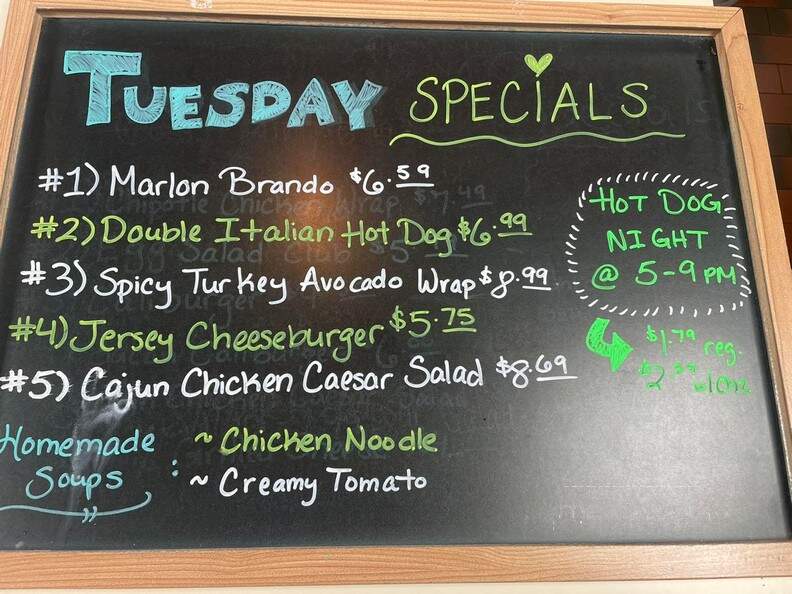 TUESDAY SPECIALS
#1) Marlon Brando $6.59
#2) Double Italian Hot Dog $6.99
#3) Spicy Turkey Avocado Wrap $8.99
#4) Jersey Cheeseburger $5.75
#5) Cajun Chicken Caesar Salad $8.69
Homemade Soups :
~ Chicken Noodle
~ Creamy Tomato
HOT DOG
NIGHT
@ 5-9 PM
$1.79 reg.